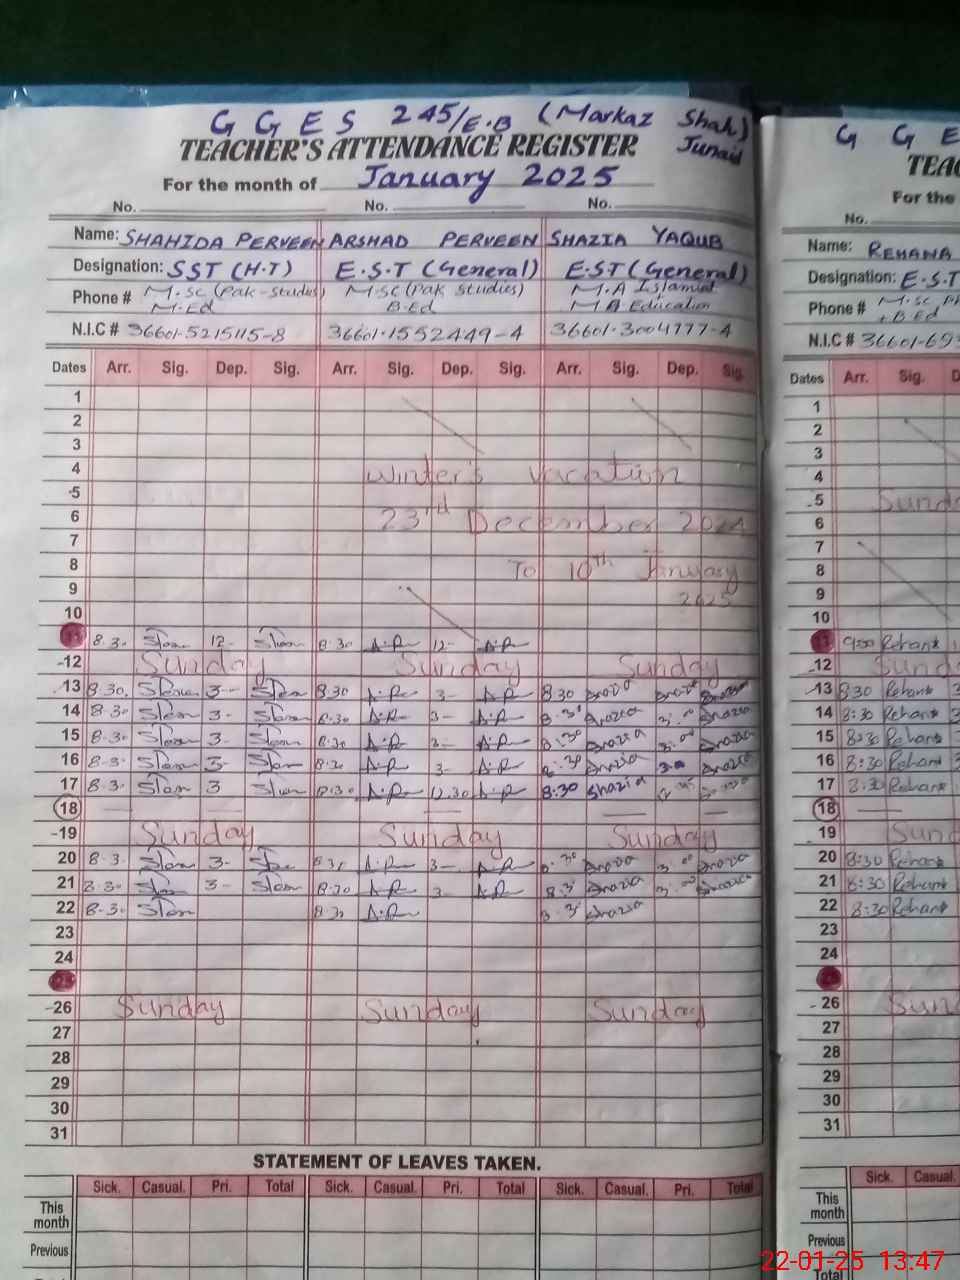 G G E S 245/E.B (Markaz Shah Junaid)
TEACHER'S ATTENDANCE REGISTER
For the month of January 2025
No. No. No.
Name: SHAHIDA PERVEEN ARSHAD PERVEEN SHAZIA YAQUB
Designation: SST (H.T) E.S.T (General) E.ST (General)
Phone # M.Sc (Pak-Studies) M.Sc (Pak Studies) M.A Islamiat
M.Ed B.Ed M A Education
N.I.C # 36601-5215115-8 36601-1552449-4 36601-3004777-4
Dates Arr. Sig. Dep. Sig. Arr. Sig. Dep. Sig. Arr. Sig. Dep. Sig.
1
2
3
4 Winter's Vacation
5
6 23rd December 2024
7
8 To 10th January
9 2025
10
8.30 12- 8.30 A.P 12- A.P
12 Sunday Sunday Sunday
13 8.30 3- 8.30 A.P 3- A.P 8.30 Shazia
14 8.30 3- 8.30 A.P 3- A.P 8.30 Shazia 3.00 Shazia
15 8.30 3- 8.30 A.P 3- A.P 8.30 Shazia 3.00 Shazia
16 8.3- 3- 8.30 A.P 3- A.P 8.30 Shazia 3.0 Shazia
17 8.3- 3 8.30 A.P 12.30 A.P 8:30 Shazia
18
19 Sunday Sunday Sunday
20 8.3- 3- 8.30 A.P 3- A.P 8.30 Shazia 3.00 Shazia
21 8.3- 3- 8.30 A.P 3- A.P 8.3 Shazia 3.00 Shazia
22 8.3- 8.30 A.P 8.3 Shazia
23
24
26 Sunday Sunday Sunday
27
28
29
30
31
STATEMENT OF LEAVES TAKEN.
Sick. Casual. Pri. Total Sick. Casual. Pri. Total Sick. Casual. Pri. Total
This month
Previous
Total
G G E
TEAC
For the
No.
Name: REHANA
Designation: E.S.T
Phone # M.Sc
+B.Ed
N.I.C # 36601-69
Dates Arr. Sig. D
1
2
3
4
5 Sund
6
7
8
9
10
9:00 Rehana
12 Sund
13 8:30 Rehana
14 8:30 Rehana
15 8:30 Rehana
16 8:30 Rehana
17 8:30 Rehana
18
19 Sund
20 8:30 Rehana
21 8:30 Rehana
22 8:30 Rehana
23
24
26 Sun
27
28
29
30
31
Sick. Casual.
This month
Previous
Total
22-01-25 13:47